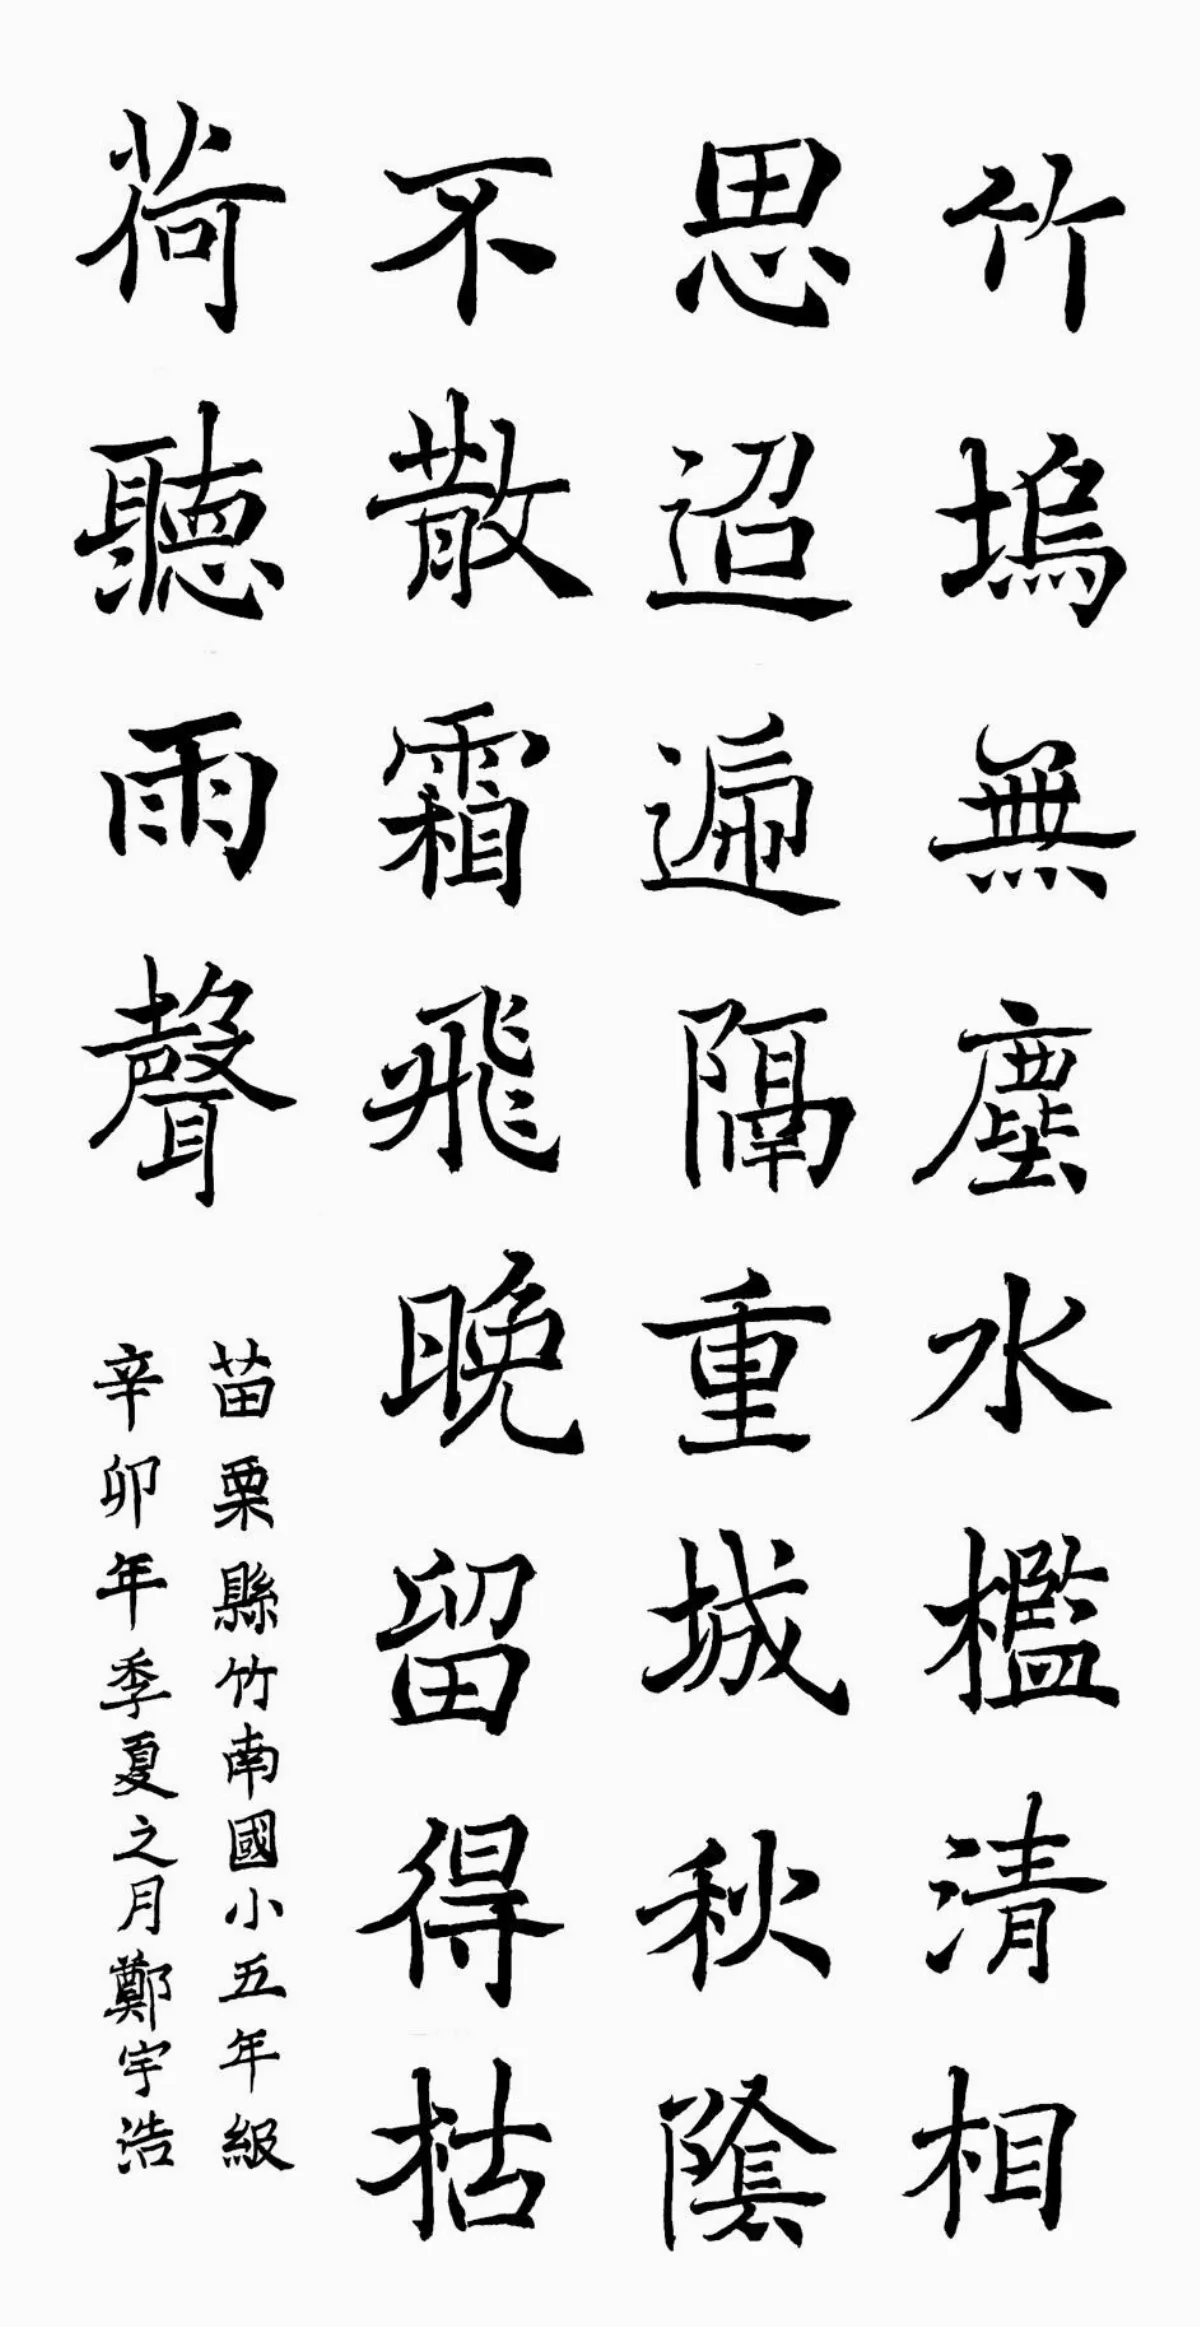 竹塢無塵水檻清相
思迢遞隔重城秋陰
不散霜飛晚留得枯
荷聽雨聲
苗栗縣竹南國小五年級
辛卯年季夏之月鄭宇浩